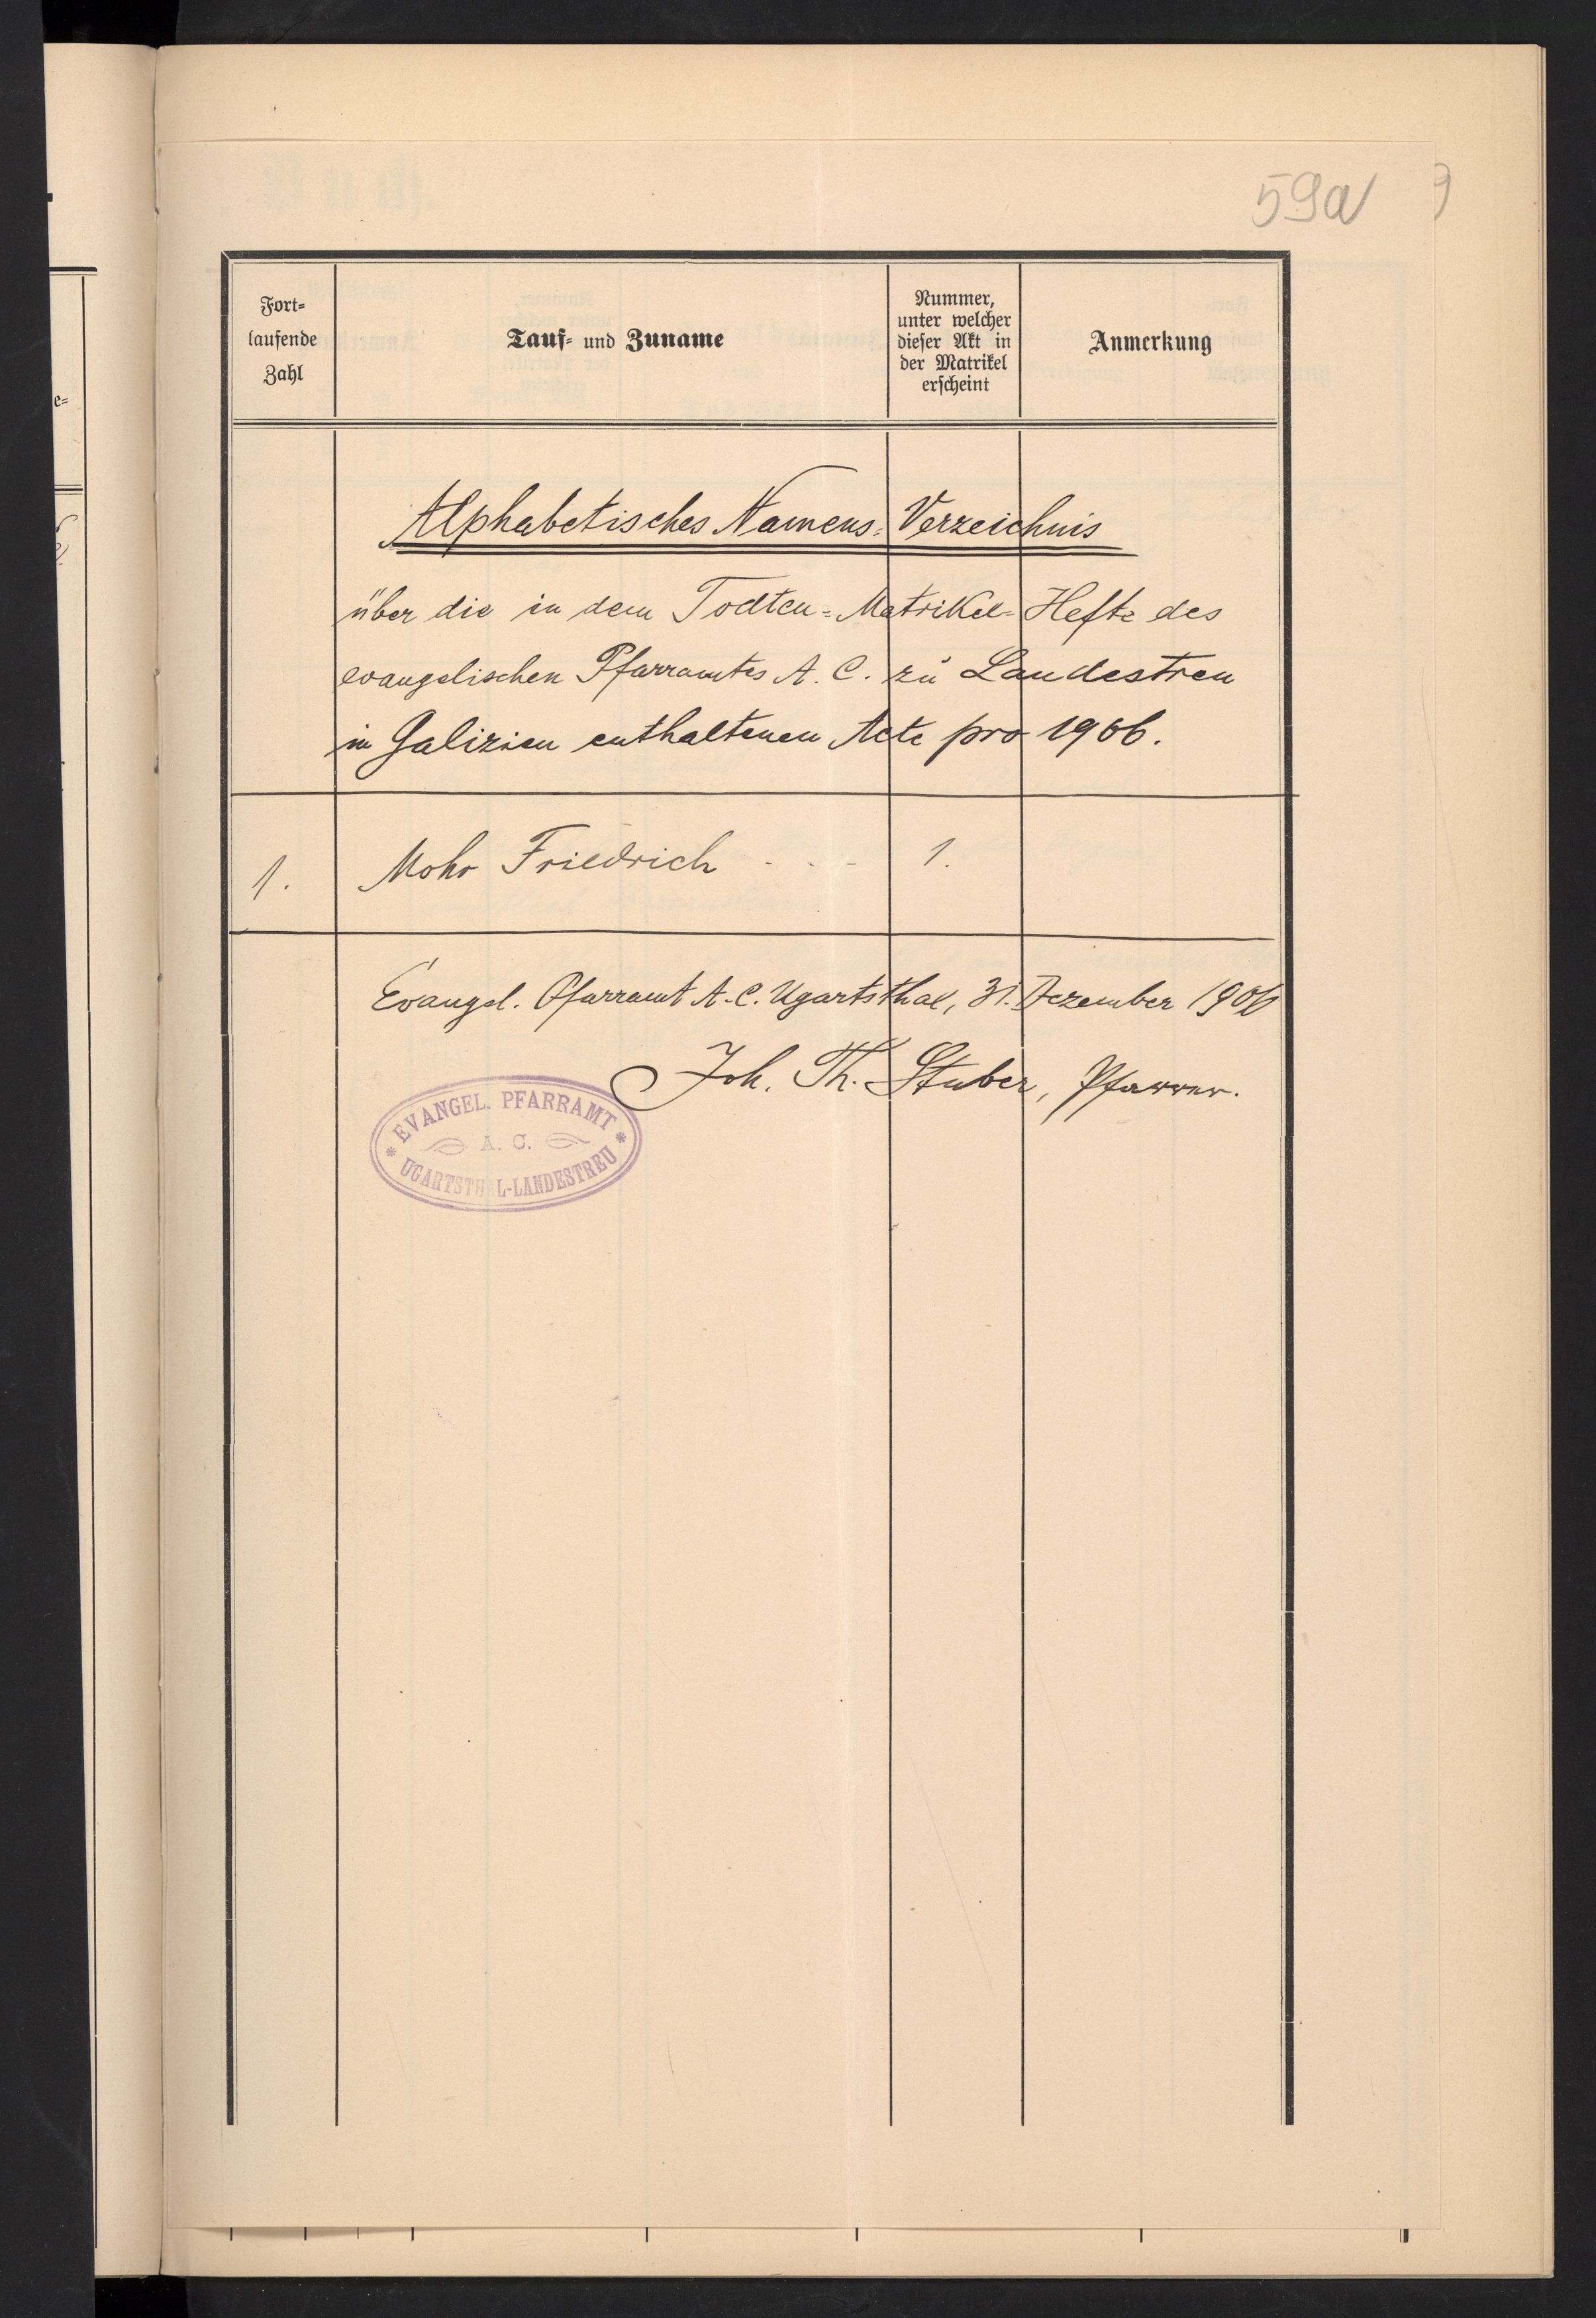 59a
Fort=
laufende
Zahl
Tauf= und Zuname
Nummer,
unter welcher
dieser Akt in
der Matrikel
erscheint
Anmerkung
Alphabetisches Namens=Verzeichnis
über die in dem Todten=Matrikel=Hefte des
evangelischen Pfarramtes A. C. zu Landestreu
in Galizien enthaltenen Acte pro 1906.
1. Mohr Friedrich - - - 1.
Evangel. Pfarramt A. C. Ugartsthal, 31. Dezember 1906
Joh. Th. Stuber, Pfarrer.
* EVANGEL. PFARRAMT *
A. C.
UGARTSTHAL-LANDESTREU